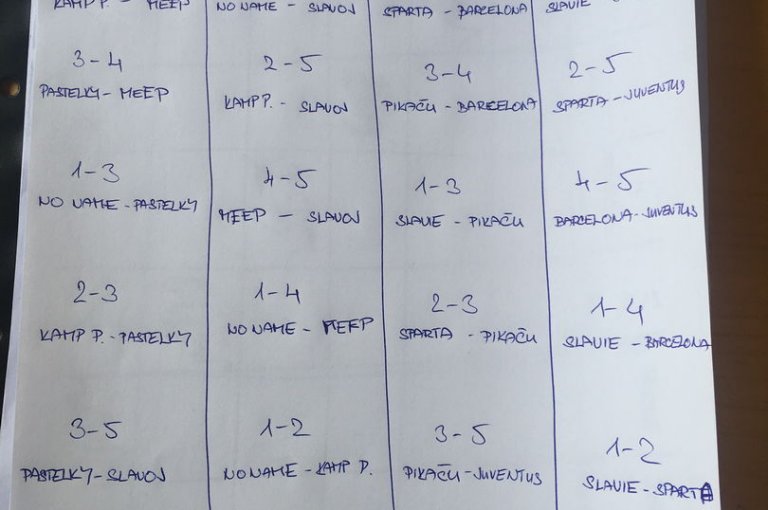 KAMP P. - MEEP
NO NAME - SLAVOJ
SPARTA - BARCELONA
SLAVIE -
3-4
2-5
3-4
2-5
PASTELKY - MEEP
KAMP P. - SLAVOJ
PIKAČU - BARCELONA
SPARTA - JUVENTUS
1-3
4-5
1-3
4-5
NO NAME - PASTELKY
MEEP - SLAVOJ
SLAVIE - PIKAČU
BARCELONA - JUVENTUS
2-3
1-4
2-3
1-4
KAMP P. - PASTELKY
NO NAME - MEEP
SPARTA - PIKAČU
SLAVIE - BARCELONA
3-5
1-2
3-5
1-2
PASTELKY - SLAVOJ
NO NAME - KAMP P.
PIKAČU - JUVENTUS
SLAVIE - SPARTA